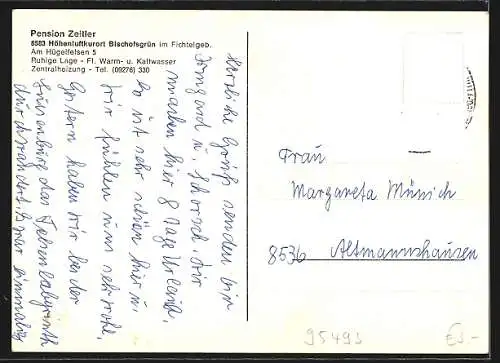 Pension Zeitler
8583 Höhenluftkurort Bischofsgrün im Fichtelgeb.
Am Hügelfelsen 5
Ruhige Lage - Fl. Warm- u. Kaltwasser
Zentralheizung - Tel. (09276) 330
Herzliche Grüße senden wir
Irmgard u. Schorsch. Wir
machen hier 8 Tage Urlaub.
Es ist sehr schön hier u.
wir fühlen uns sehr wohl.
Gestern haben wir bei der
Luisenburg das Felsenlabyrinth
durchwandert. War einmalig
Frau
Margareta Münich
8536 Altmannshausen
95493